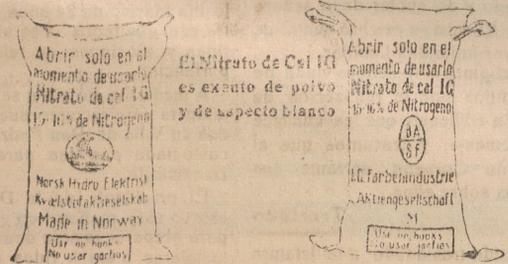 Abrir solo en el
momento de usarlo
Nitrato de cal IG
15-16% de Nitrogeno
Norsk Hydro Elektrisk
Kvaelstofaktieselskab
Made in Norway
Use no hooks
No usar garfios
El Nitrato de Cal IG
es exento de polvo
y de aspecto blanco
Abrir solo en el
momento de usarlo
Nitrato de cal IG
15-16% de Nitrogeno
BA
SF
I.G. Farbenindustrie
Aktiengesellschaft
M
Use no hooks
No usar garfios